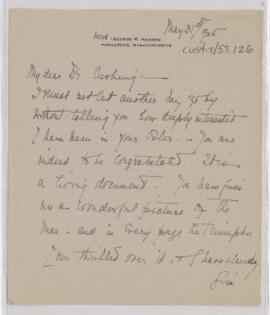 May 31st 1925
MRS. GEORGE R. 
PONKAPOAG, MASSACHUSETTS
CUS417/57.126
My dear Dr. Cushing:—
I must not let another day go by
without telling you how deeply interested
I have been in your Osler. — You are
indeed to be congratulated. It is
a living document. You have given
us a wonderful picture of the
Man — and in every page he triumphs
I am thrilled over it, & I have already